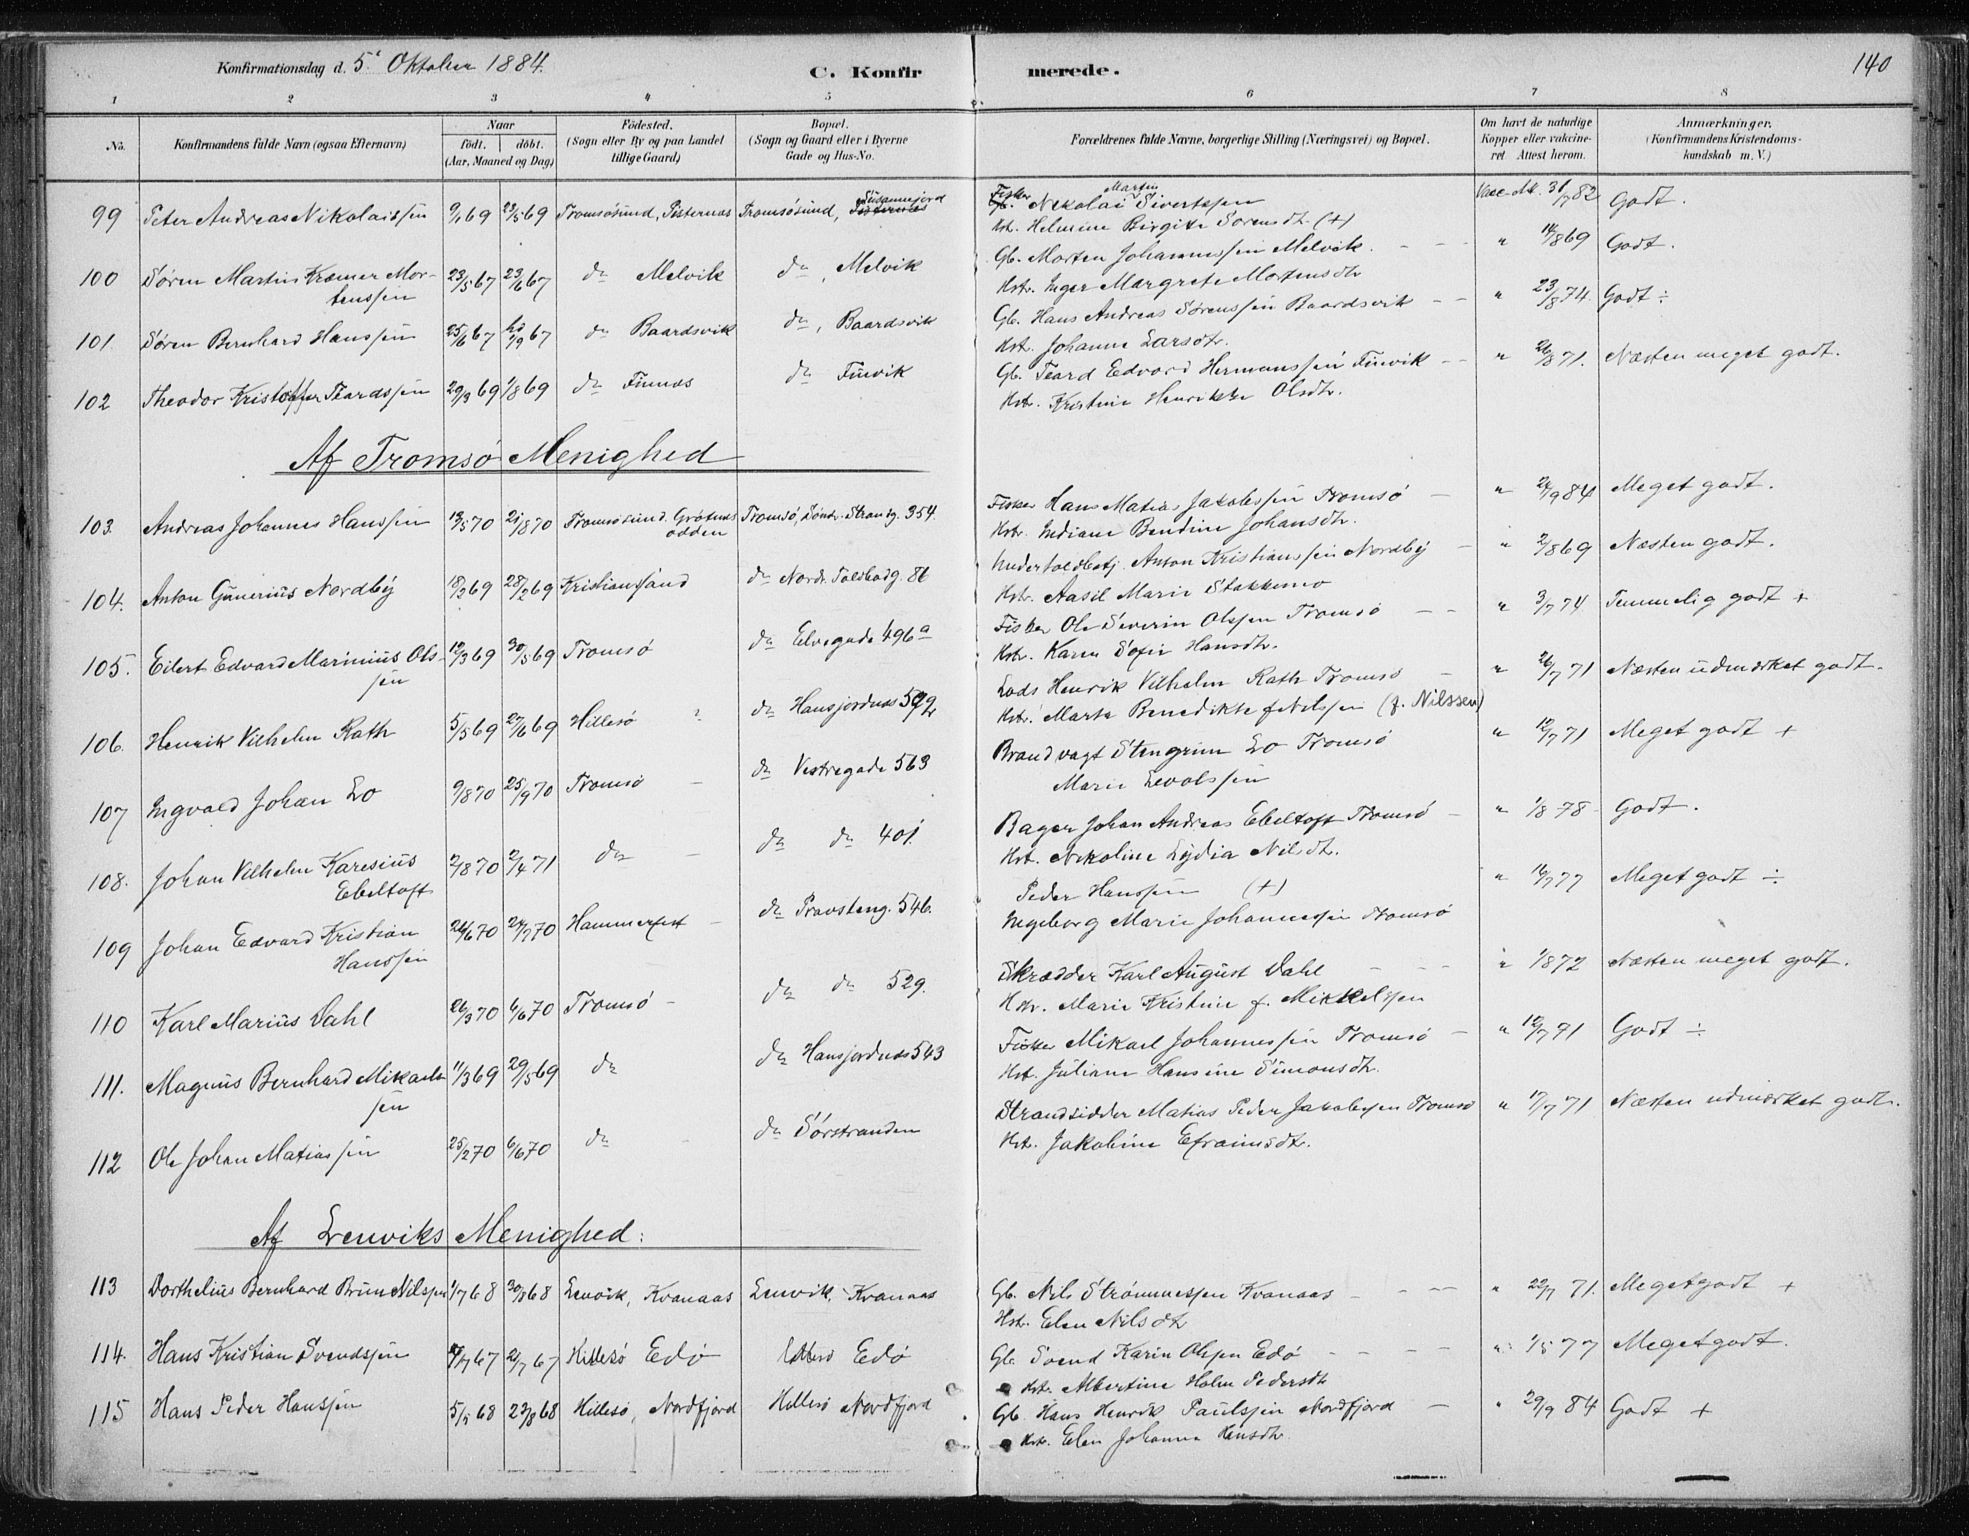 Konfirmationsdag d. 5' Oktober 1884.
C. Konfirmerede.
140
1 2 3 4 5 6 7 8
No. Konfirmandens fulde Navn (ogsaa Efternavn) Naar født. døbt. (Aar, Maaned og Dag) Fødested. (Sogn eller By og paa Landet tillige Gaard) Bopæl. (Sogn og Gaard eller i Byerne Gade og Hus-No. Forældrenes fulde Navne, borgerlige Stilling (Næringsvei) og Bopæl. Om havt de naturlige Kopper eller vakcineret Attest herom. Anmærkninger. (Konfirmandens Kristendomskundskab m. V.)
99 Peter Andreas Nikolaissen 9/1 69 23/5 69 Tromsøsund, Tisternes Tromsøsund, Fisker Nikolai Martin Sivertssen Vacc. Att. 31/7 82 Godt.
Hst. Helmine Birgitte Sørensdtr (+)
100 Søren Martin Kræmer Mortenssen 23/5 67 23/6 67 do Melvik do, Melvik Gb. Morten Johannessen Melvik. " 14/8 69 Godt.
Hstr. Inger Margrete Mortensdtr
101 Søren Bernhard Hanssen 25/6 67 /9 67 do Baardsvik do, Baardsvik Gb. Hans Andreas Sørenssen Baardsvik " 23/8 74. Godt ÷
Hst. Johanne Larsdtr.
102 Theodor Kristoffer Teardssen 29/3 69 1/8 69 do Finnes do Finvik Gb. Teard Edvard Hermanssen Finvik " 26/8 71. Næsten meget godt.
Hstr. Kristine Henrikke Olsdtr.
Af Tromsø Menighed
103. Andreas Johannes Hanssen 13/5 70 21/8 70 Tromsøsund. Grøtnesodden Tromsø, Søndr. Strandg. 354. Fisker Hans Matias Jakobssen Tromsø " 24/9 84 Meget godt.
Hstr. Indiane Bendine Johansdtr.
104. Anton Gunerius Nordby 18/2 69 28/2 69 Kristianssand do Nordr. Toldbodg. 86 Undertoldbetj. Anton Kristianssen Nordby " 2/8 69 Næsten godt.
Hstr. Aasil Marie Stakkemo
105. Eilert Edvard Marinius Olssen 12/3 69 30/5 69 Tromsø do Elvegade 496a Fisker Ole Severin Olssen Tromsø " 3/7 74 Temmelig godt +
Hstr. Karen Sofie Hansdtr.
106. Henrik Vilhelm Rath 5/5 69 27/6 69 Hillesø do Hansjordnes Lods Henrik Vilhelm Rath Tromsø " 26/7 71 Næsten udmærket godt.
Hstr. Marta Benedikte f. Nilssen (f. Nilssen)
107 Ingvald Johan Lo 9/8 70 25/9 70 Tromsø do Vestregade 563 Brandvagt Stengrim Lo Tromsø " 12/7 71 Meget godt +
Marie Levolssen
108. Johan Vilhelm Karesius Ebeltoft 2/8 70 2/4 71 do do do 401. Bager Johan Andreas Ebeltoft Tromsø " 1/8 78 Godt.
Hst. Nikoline Lydia Nilsdtr.
109 Johan Edvard Kristian Hanssen 26/6 70 24/7 70 Hammerfest do Provsteng. 546. Peder Hanssen (+) " 16/7 77 Meget godt ÷
Ingeborg Marie Johannessen Tromsø
110 Karl Marius Dahl 26/3 70 6/6 70 Tromsø do do 529. Skrædder Karl August Dahl " 1/8 72 Næsten meget godt.
Hstr. Marie Kristine f. Mikkelssen
111. Magnus Bernhard Mikaelssen 11/3 69 29/5 69 do do Hansjordnes 543 Fisker Mikael Johannessen Tromsø " 12/7 71 Godt ÷
Hst. Juliane Hansine Simonsdtr.
112 Ole Johan Matiassen 25/2 70 6/6 70 do do Sørstranden Strandsidder Matias Peder Jakobssen Tromsø " 17/7 71 Næsten udmærket godt.
Hst. Jakobine Efraimsdtr.
Af Lenviks Menighed:
113 Dorthelius Bernhard Brun Nilssen 1/7 68 30/8 68 Lenvik, Kvanaas Lenvik, Kvanaas Gb. Nils Strømmessen Kvanaas " 22/7 71. Meget godt +
Hstr. Elen Nilsdtr
114. Hans Kristian Svendssen 21/7 67 Hillesø Edø Hillesø Edø Gb. Svend Karin Olssen Edø " 1/5 77 Meget godt.
Hstr. Albertine Holm Pedersdtr
115 Hans Peder Hanssen 5/5 68 23/8 68 Hillesø, Nordfjord Hillesø Nordfjord Gb. Hans Henrik Paulssen Nordfjord " 29/9 84 Godt +
Hstr. Elen Johanna